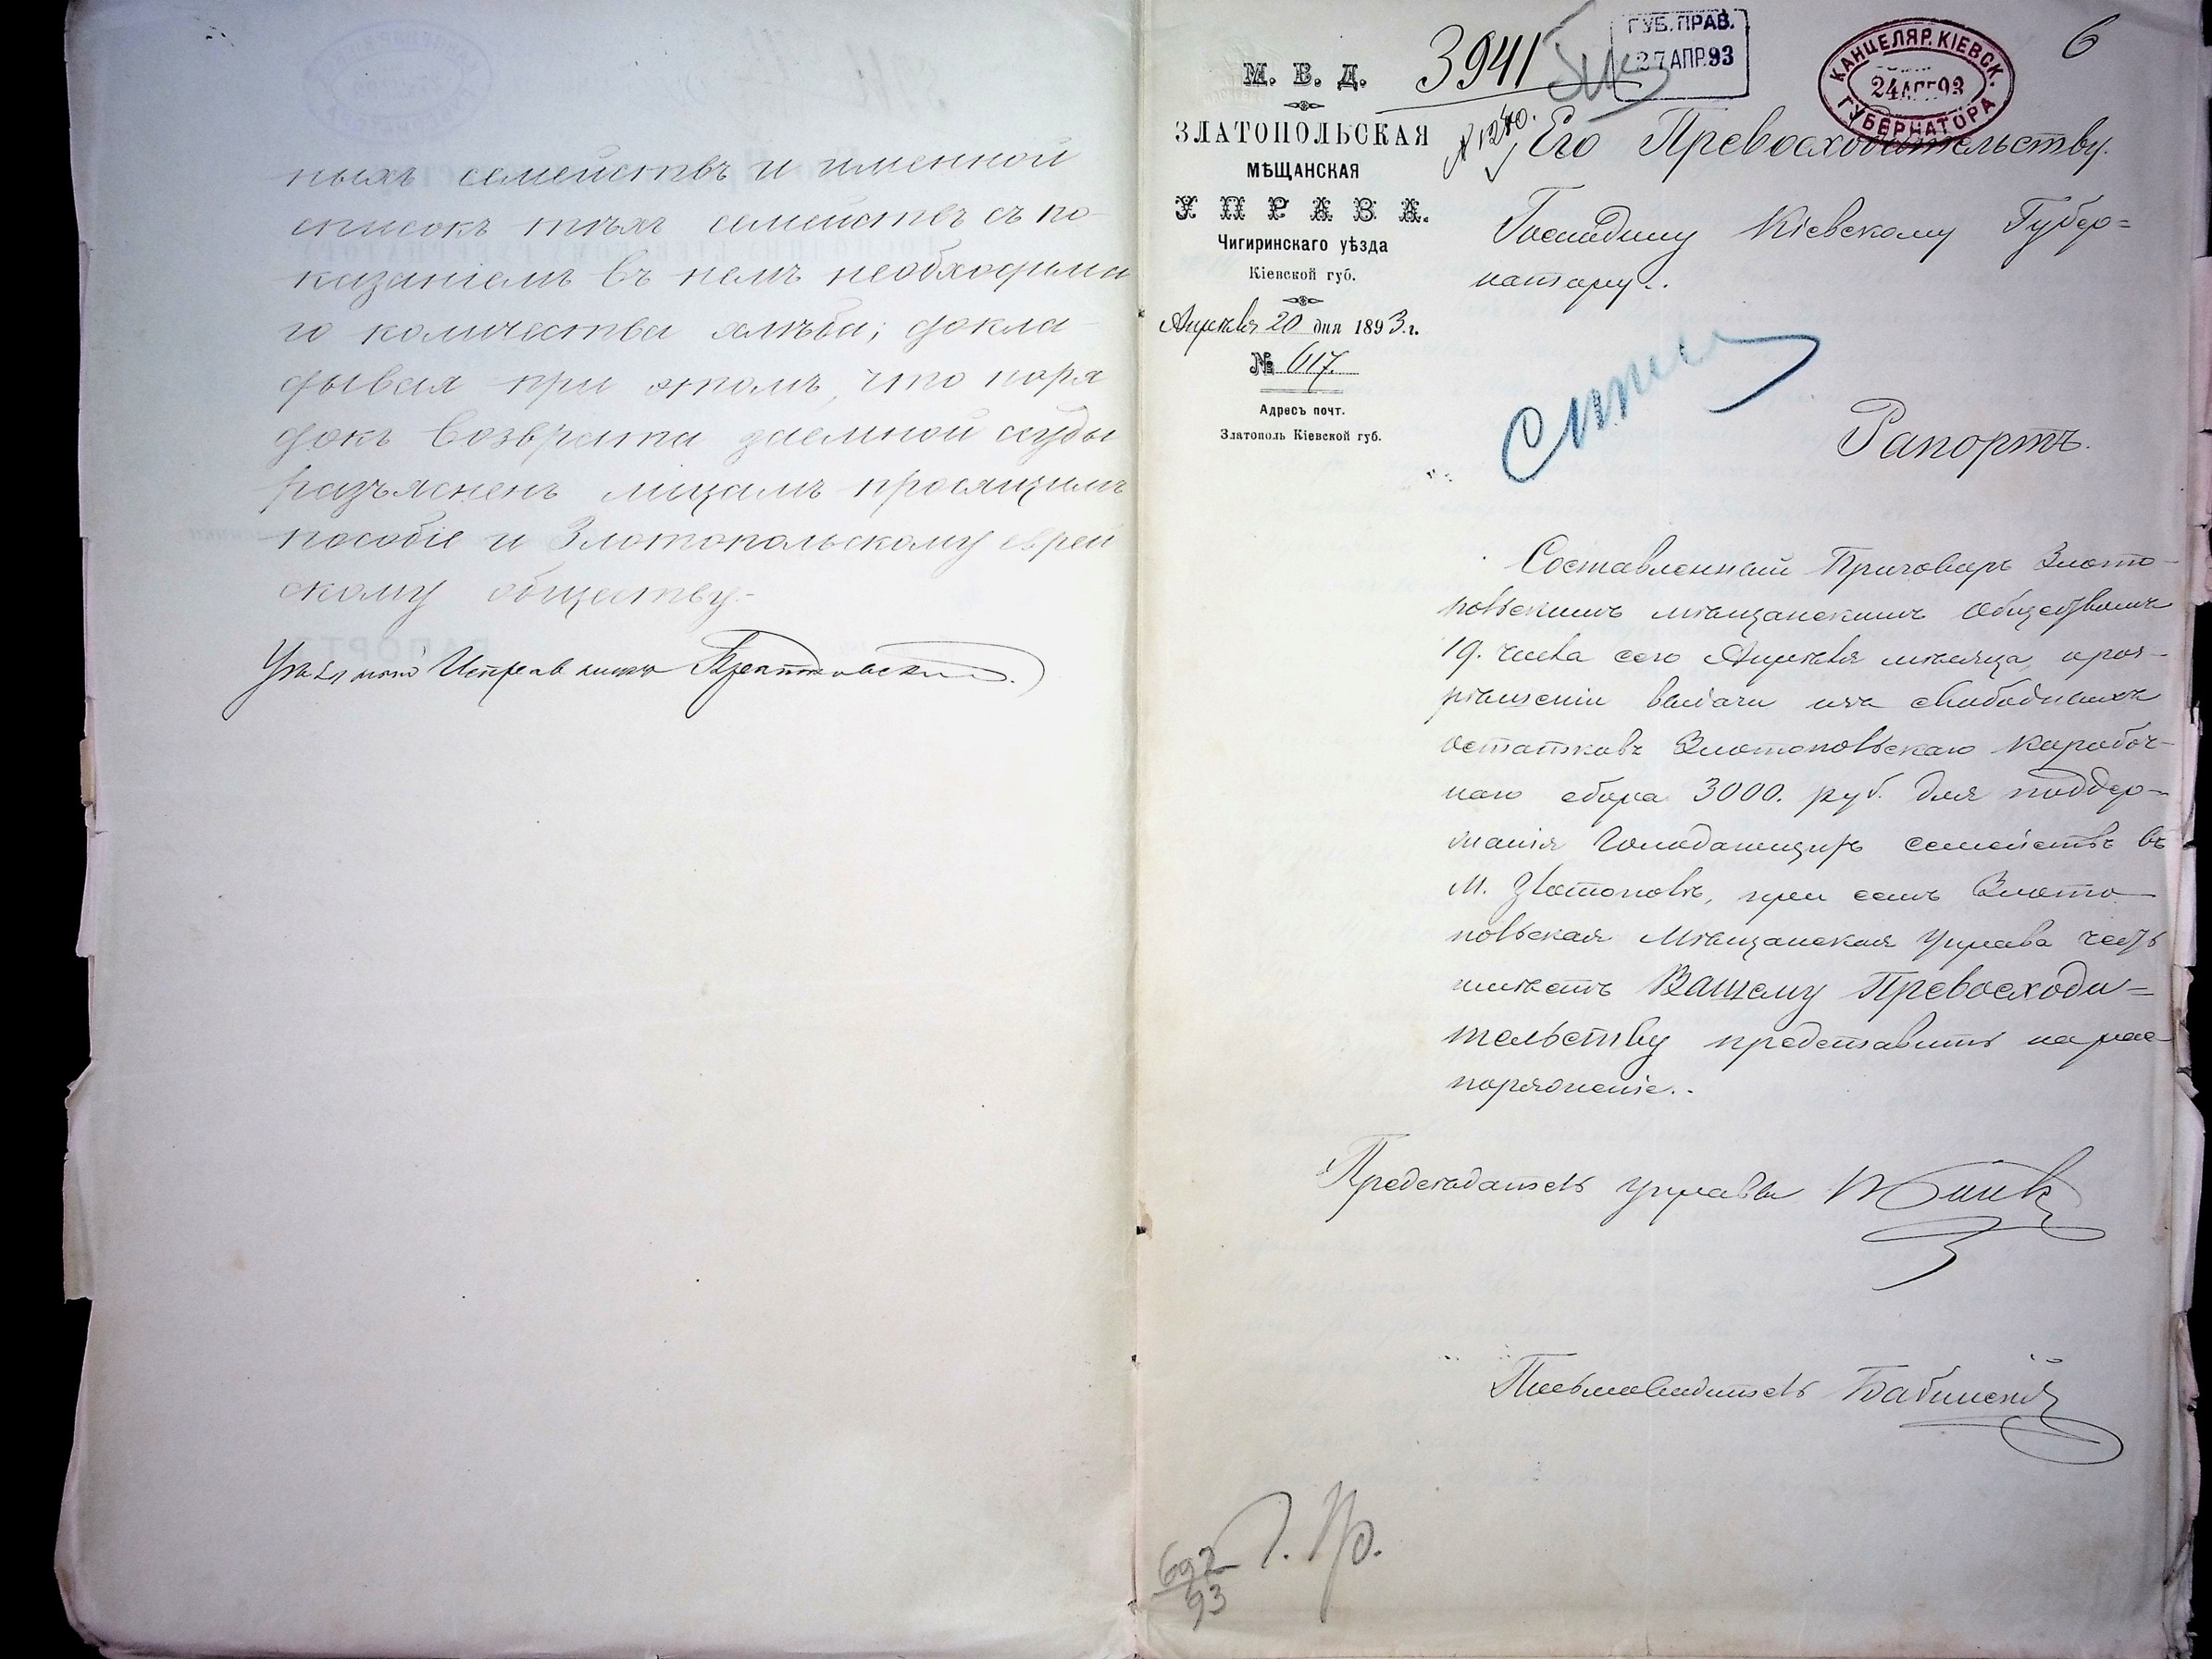 ныхъ семействъ и именной
списокъ тѣхъ семействъ съ по-
казаніемъ въ немъ необходима
го количества хлѣба; докла-
дывая при этомъ, что поря
докъ возврата заемной ссуды
разъясненъ лицамъ просящимъ
пособіе и Златопольскому еврей
скому обществу.-
Уѣздный Исправникъ
6
М. В. Д.
3941
ГУБ. ПРАВ.
27 АПР. 93
КАНЦЕЛЯР. КІЕВСК.
24 АПР 93
ГУБЕРНАТОРА
ЗЛАТОПОЛЬСКАЯ
МѢЩАНСКАЯ
УПРАВА.
Чигиринскаго уѣзда
Кіевской губ.
Апрѣля 20 дня 1893 г.
№ 617.
Адресъ почт.
Златополь Кіевской губ.
N 1240.
Его Превосходительству.
Господину Кіевскому Губер=
натору..
Рапортъ.
Составленный Приговоръ Злато-
польскимъ мѣщанскимъ обществомъ
19. числа сего Апрѣля мѣсяца, о раз-
рѣшеніи выдачи изъ свободныхъ
остатковъ Златопольскаго Коробоч-
наго сбора 3000. руб. для поддер-
жанія Голодающихъ семействъ въ
М. Златополѣ, при семъ Злато-
польская Мѣщанская Управа честь
имѣетъ Вашему Превосходи=
тельству представить на рас
поряженіе..
Председатель управы
Письмоводитель Бабинскій
692
93
Г. Пр.